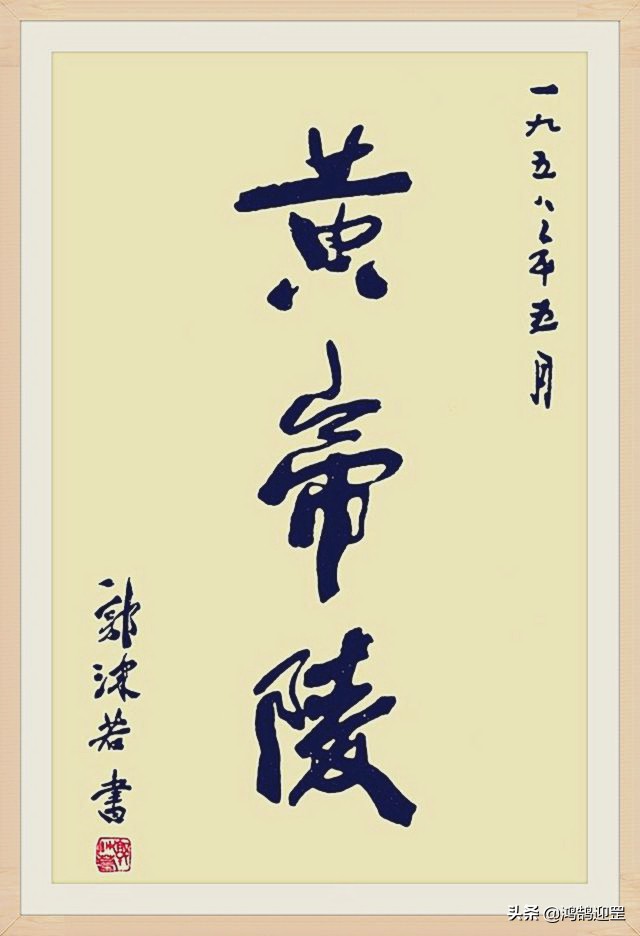 一九五八年五月
黄帝陵
郭沫若書
头条 @鸿鹄迎罡